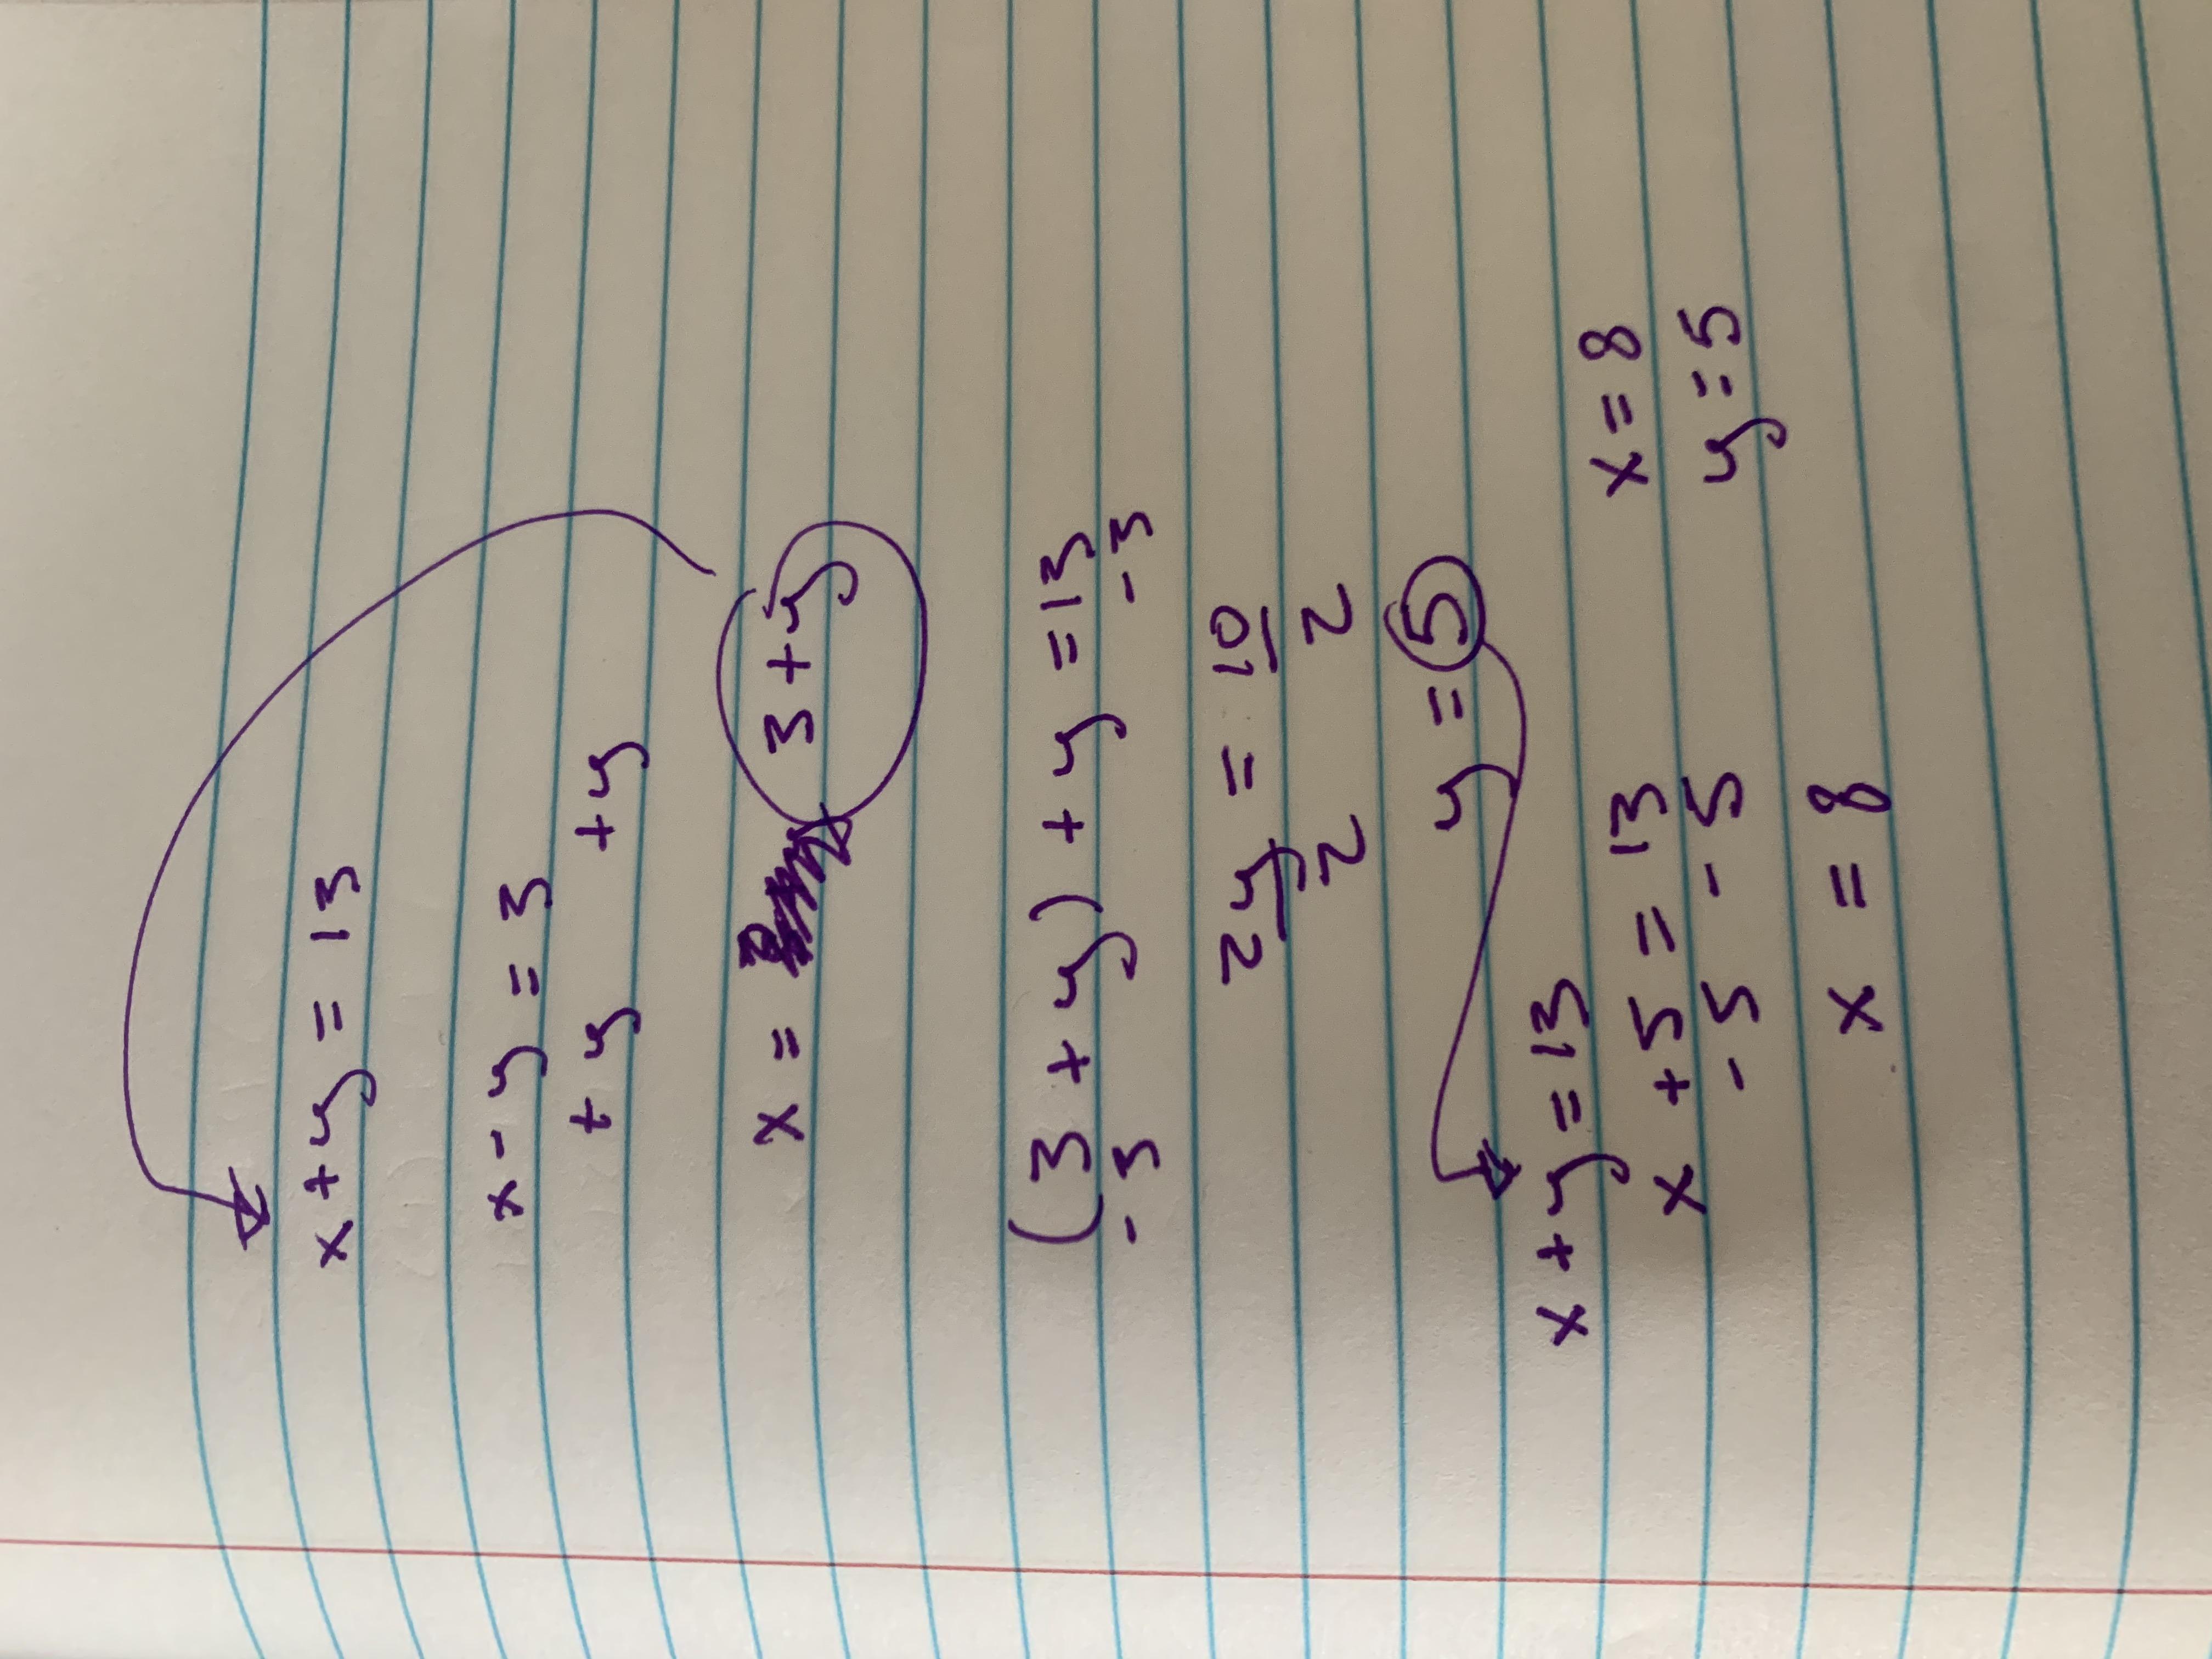 x + y = 13
x - y = 3
+ y + y
x = 3 + y
(3 + y) + y = 13
- 3 - 3
2y = 10
2 2
y = 5
x + y = 13
x + 5 = 13 x = 8
- 5 - 5 y = 5
x = 8